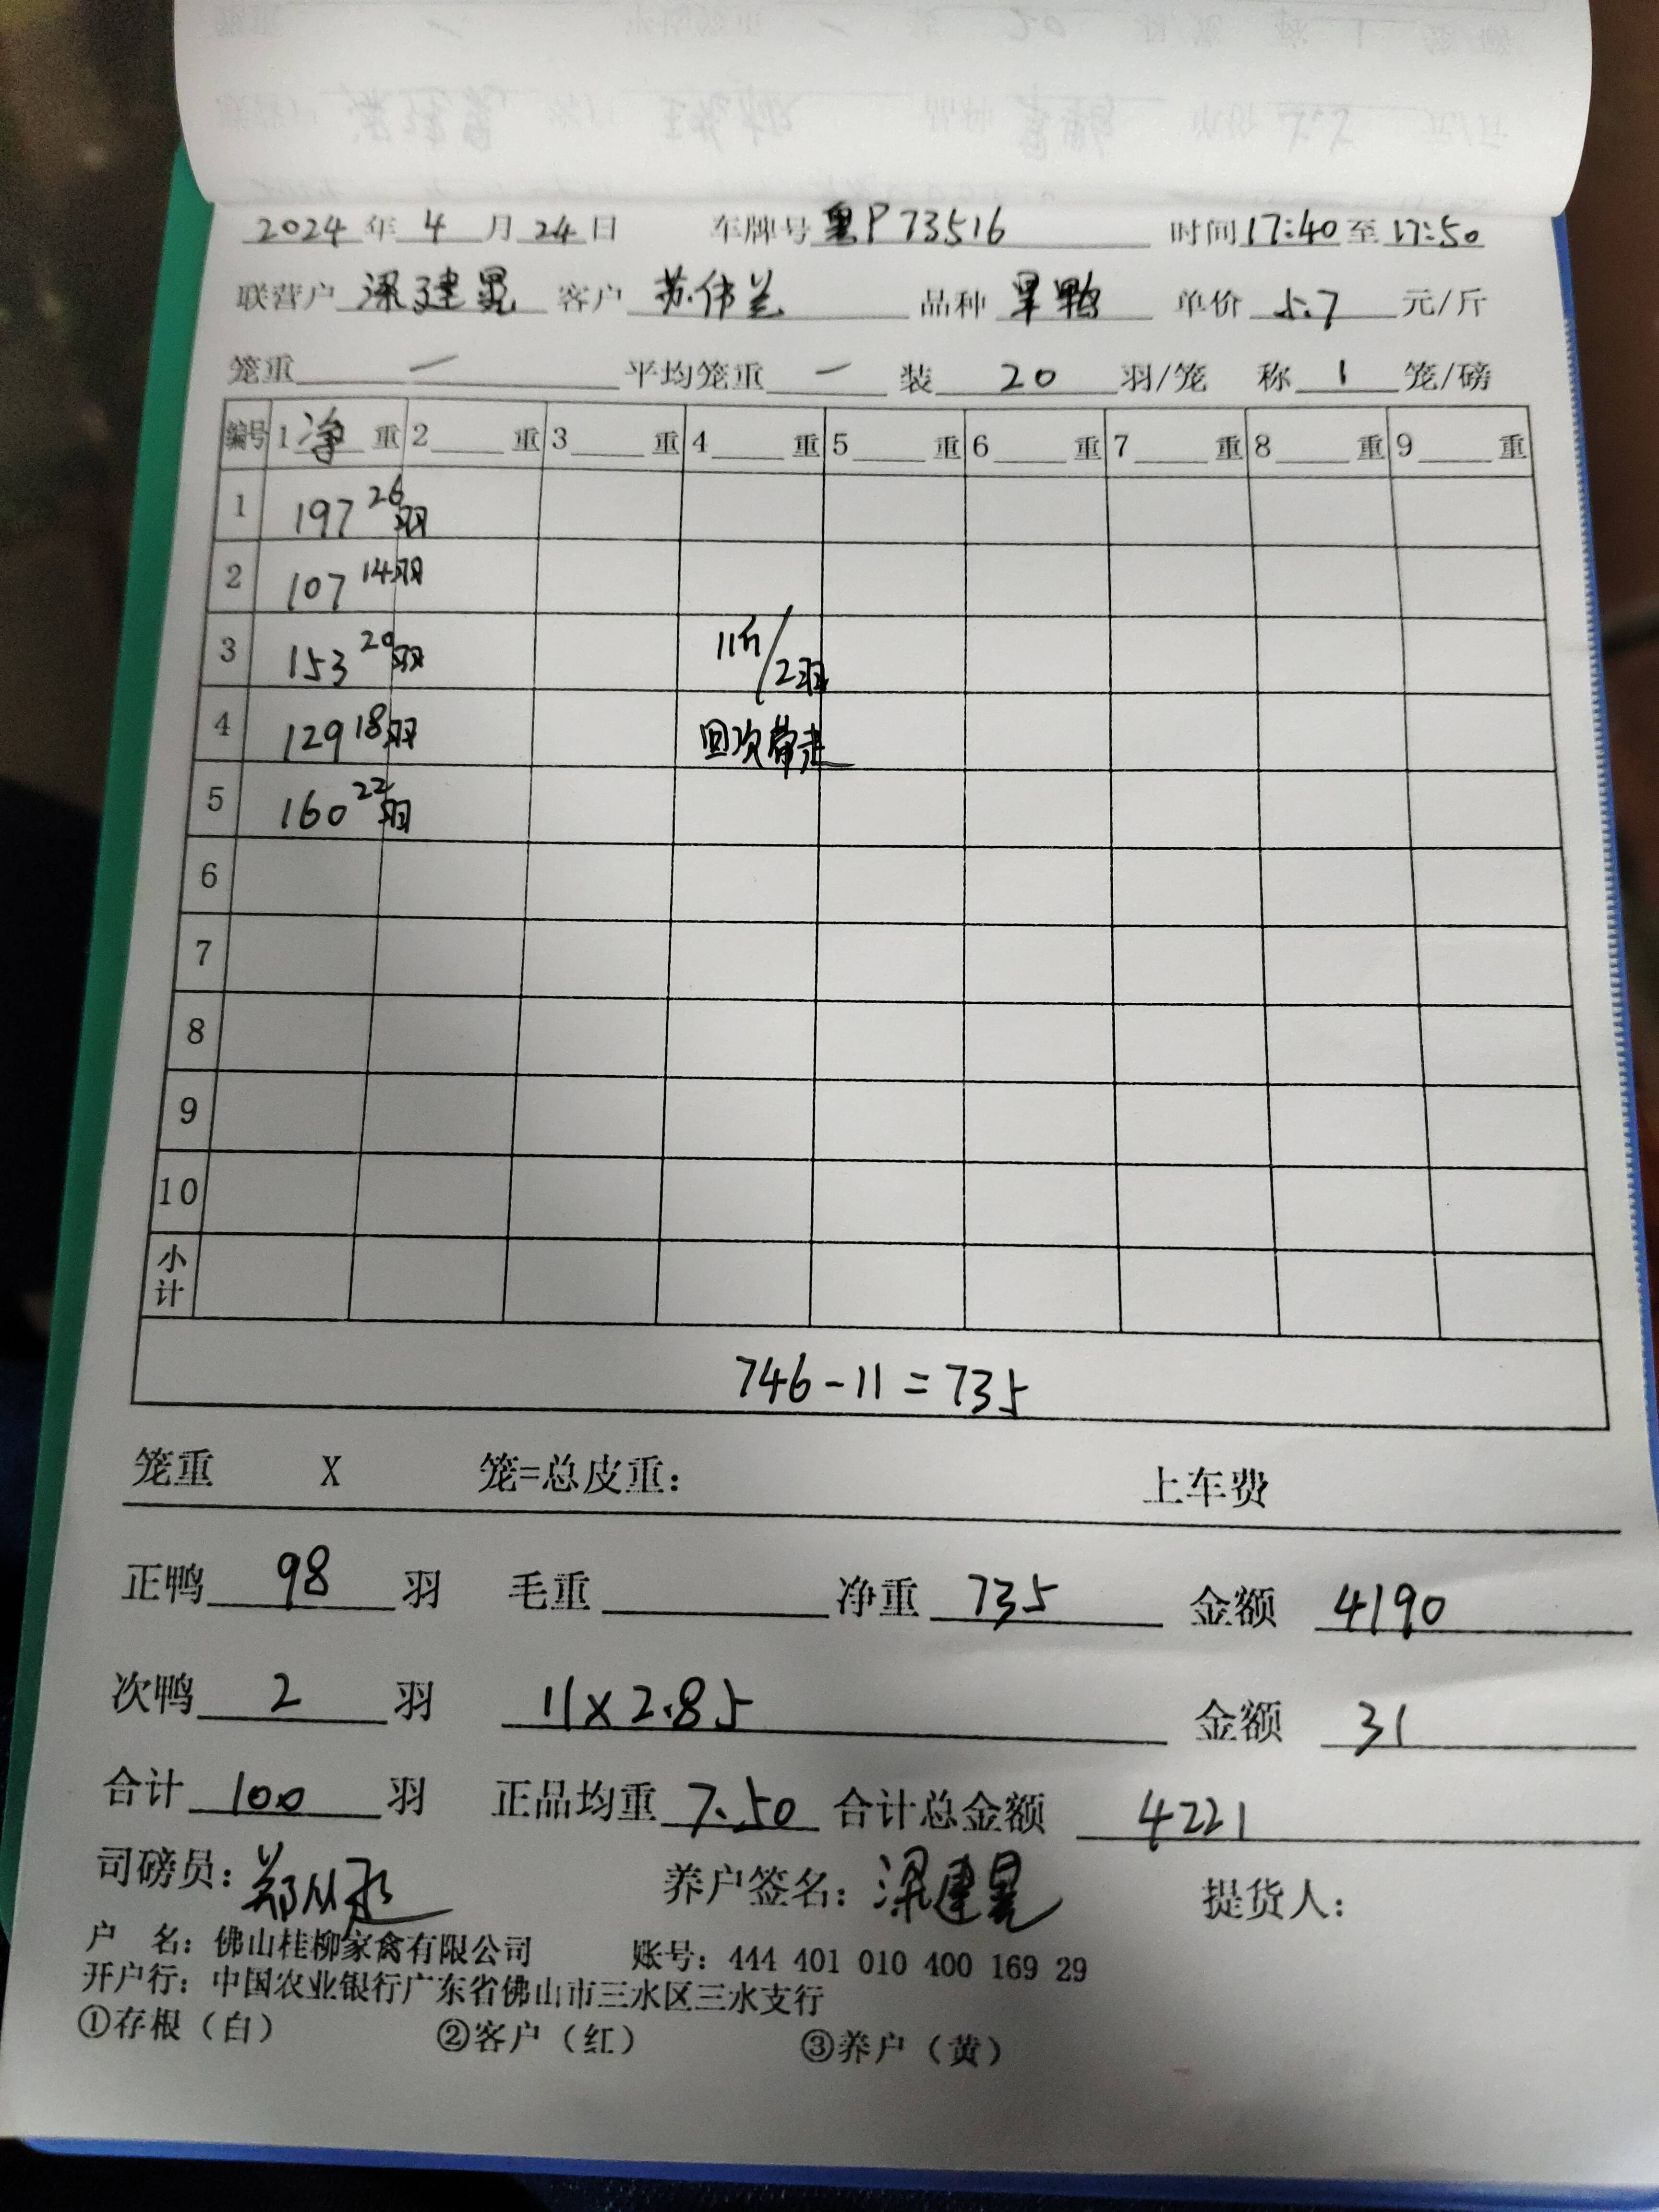 2024年4月24日 车牌号 粤P73516 时间17:40至17:50
联营户 梁建晃 客户 苏伟兰 品种 旱鸭 单价 5.7 元/斤
笼重 一 平均笼重 一 装 20 羽/笼 称 1 笼/磅
编号 1 净 重 2 重 3 重 4 重 5 重 6 重 7 重 8 重 9 重
1 197 26羽
2 107 14羽
3 153 20羽 11斤/2羽
4 129 18羽 回次带走
5 160 22羽
6
7
8
9
10
小计
746-11=735
笼重 X 笼=总皮重: 上车费
正鸭 98 羽 毛重 净重 735 金额 4190
次鸭 2 羽 11x2.85 金额 31
合计 100 羽 正品均重 7.50 合计总金额 4221
司磅员: 养户签名: 梁建晃 提货人:
户 名: 佛山桂柳家禽有限公司 账号: 444 401 010 400 169 29
开户行: 中国农业银行广东省佛山市三水区三水支行
①存根（白） ②客户（红） ③养户（黄）